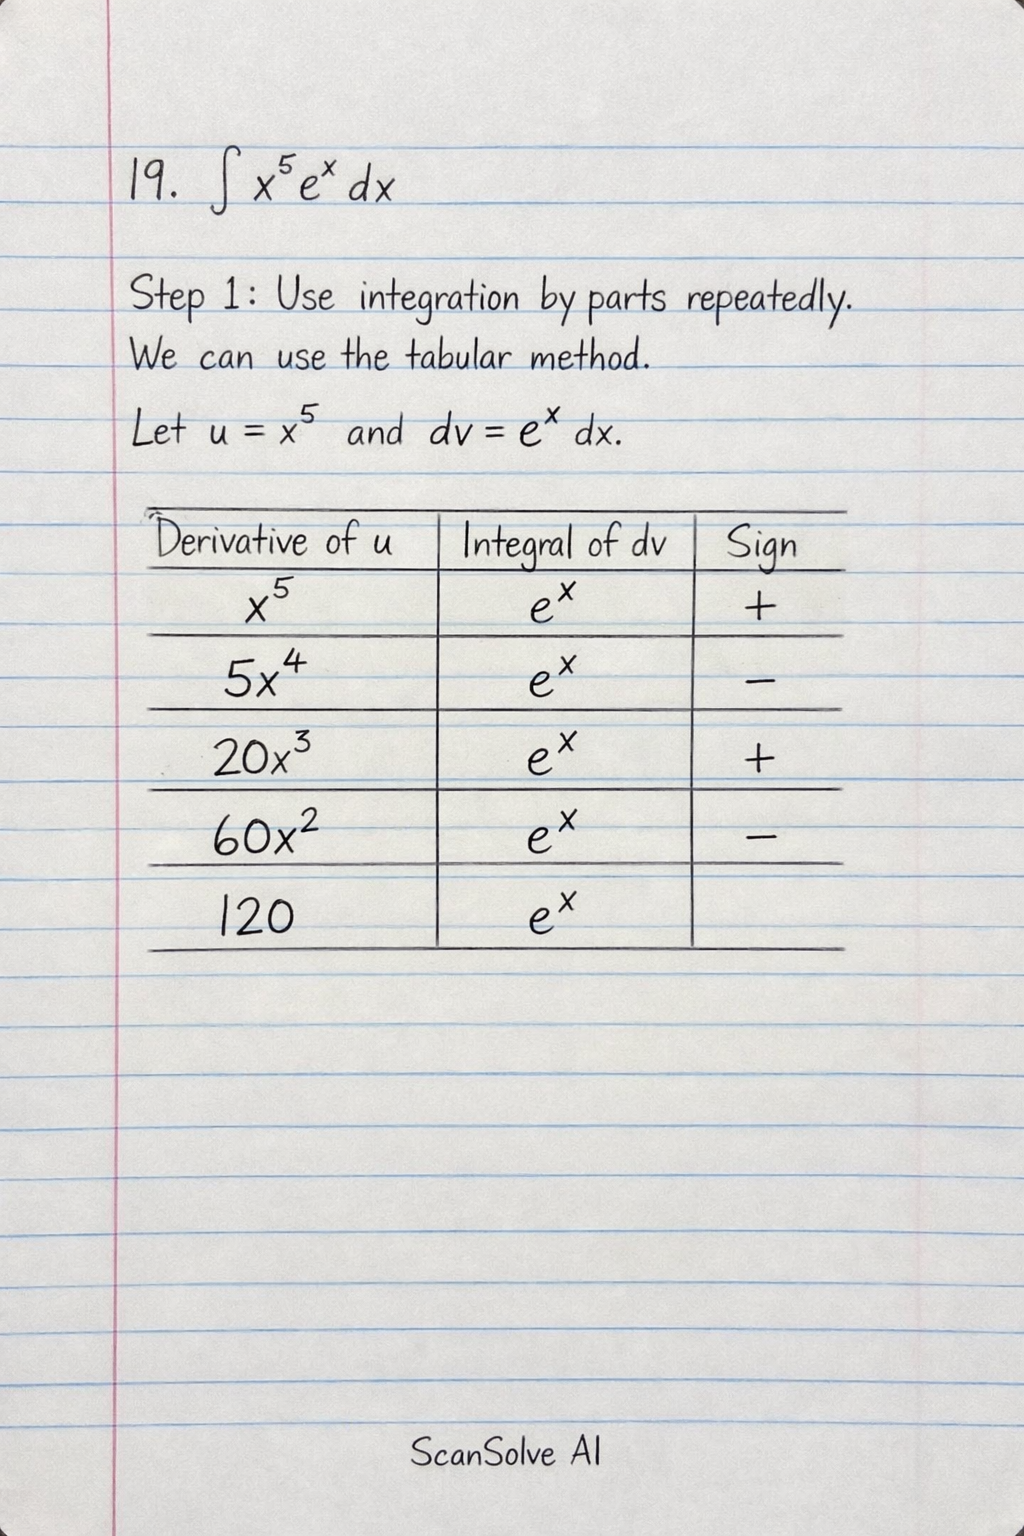 19. ∫ x⁵ eˣ dx
Step 1: Use integration by parts repeatedly.
We can use the tabular method.
Let u = x⁵ and dv = eˣ dx.
Derivative of u | Integral of dv | Sign
x⁵ | eˣ | +
5x⁴ | eˣ | −
20x³ | eˣ | +
60x² | eˣ | −
120 | eˣ |
ScanSolve AI